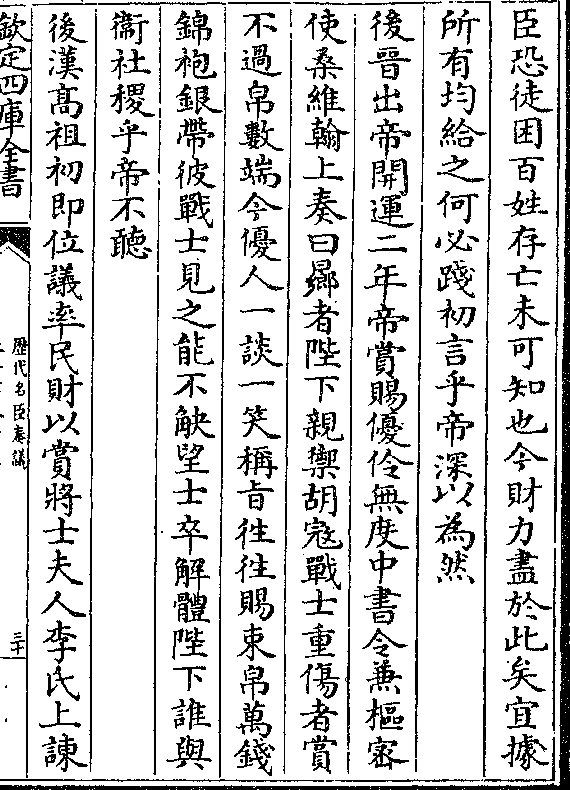 臣恐徒困百姓存亡未可知也今財力盡於此矣宜據
所有均給之何必踐初言乎帝深以為然
後晉出帝開運二年帝賞賜優伶無度中書令兼樞密
使桑維翰上奏曰曏者陛下親禦胡寇戰士重傷者賞
不過帛數端今優人一談一笑稱旨徃徃賜束帛萬錢
錦袍銀帶彼戰士見之能不觖望士卒解體陛下誰與
衞社稷乎帝不聽
後漢髙祖初即位議率民財以賞將士夫人李氏上諫
欽定四庫全書
歴代名臣奏議
三十